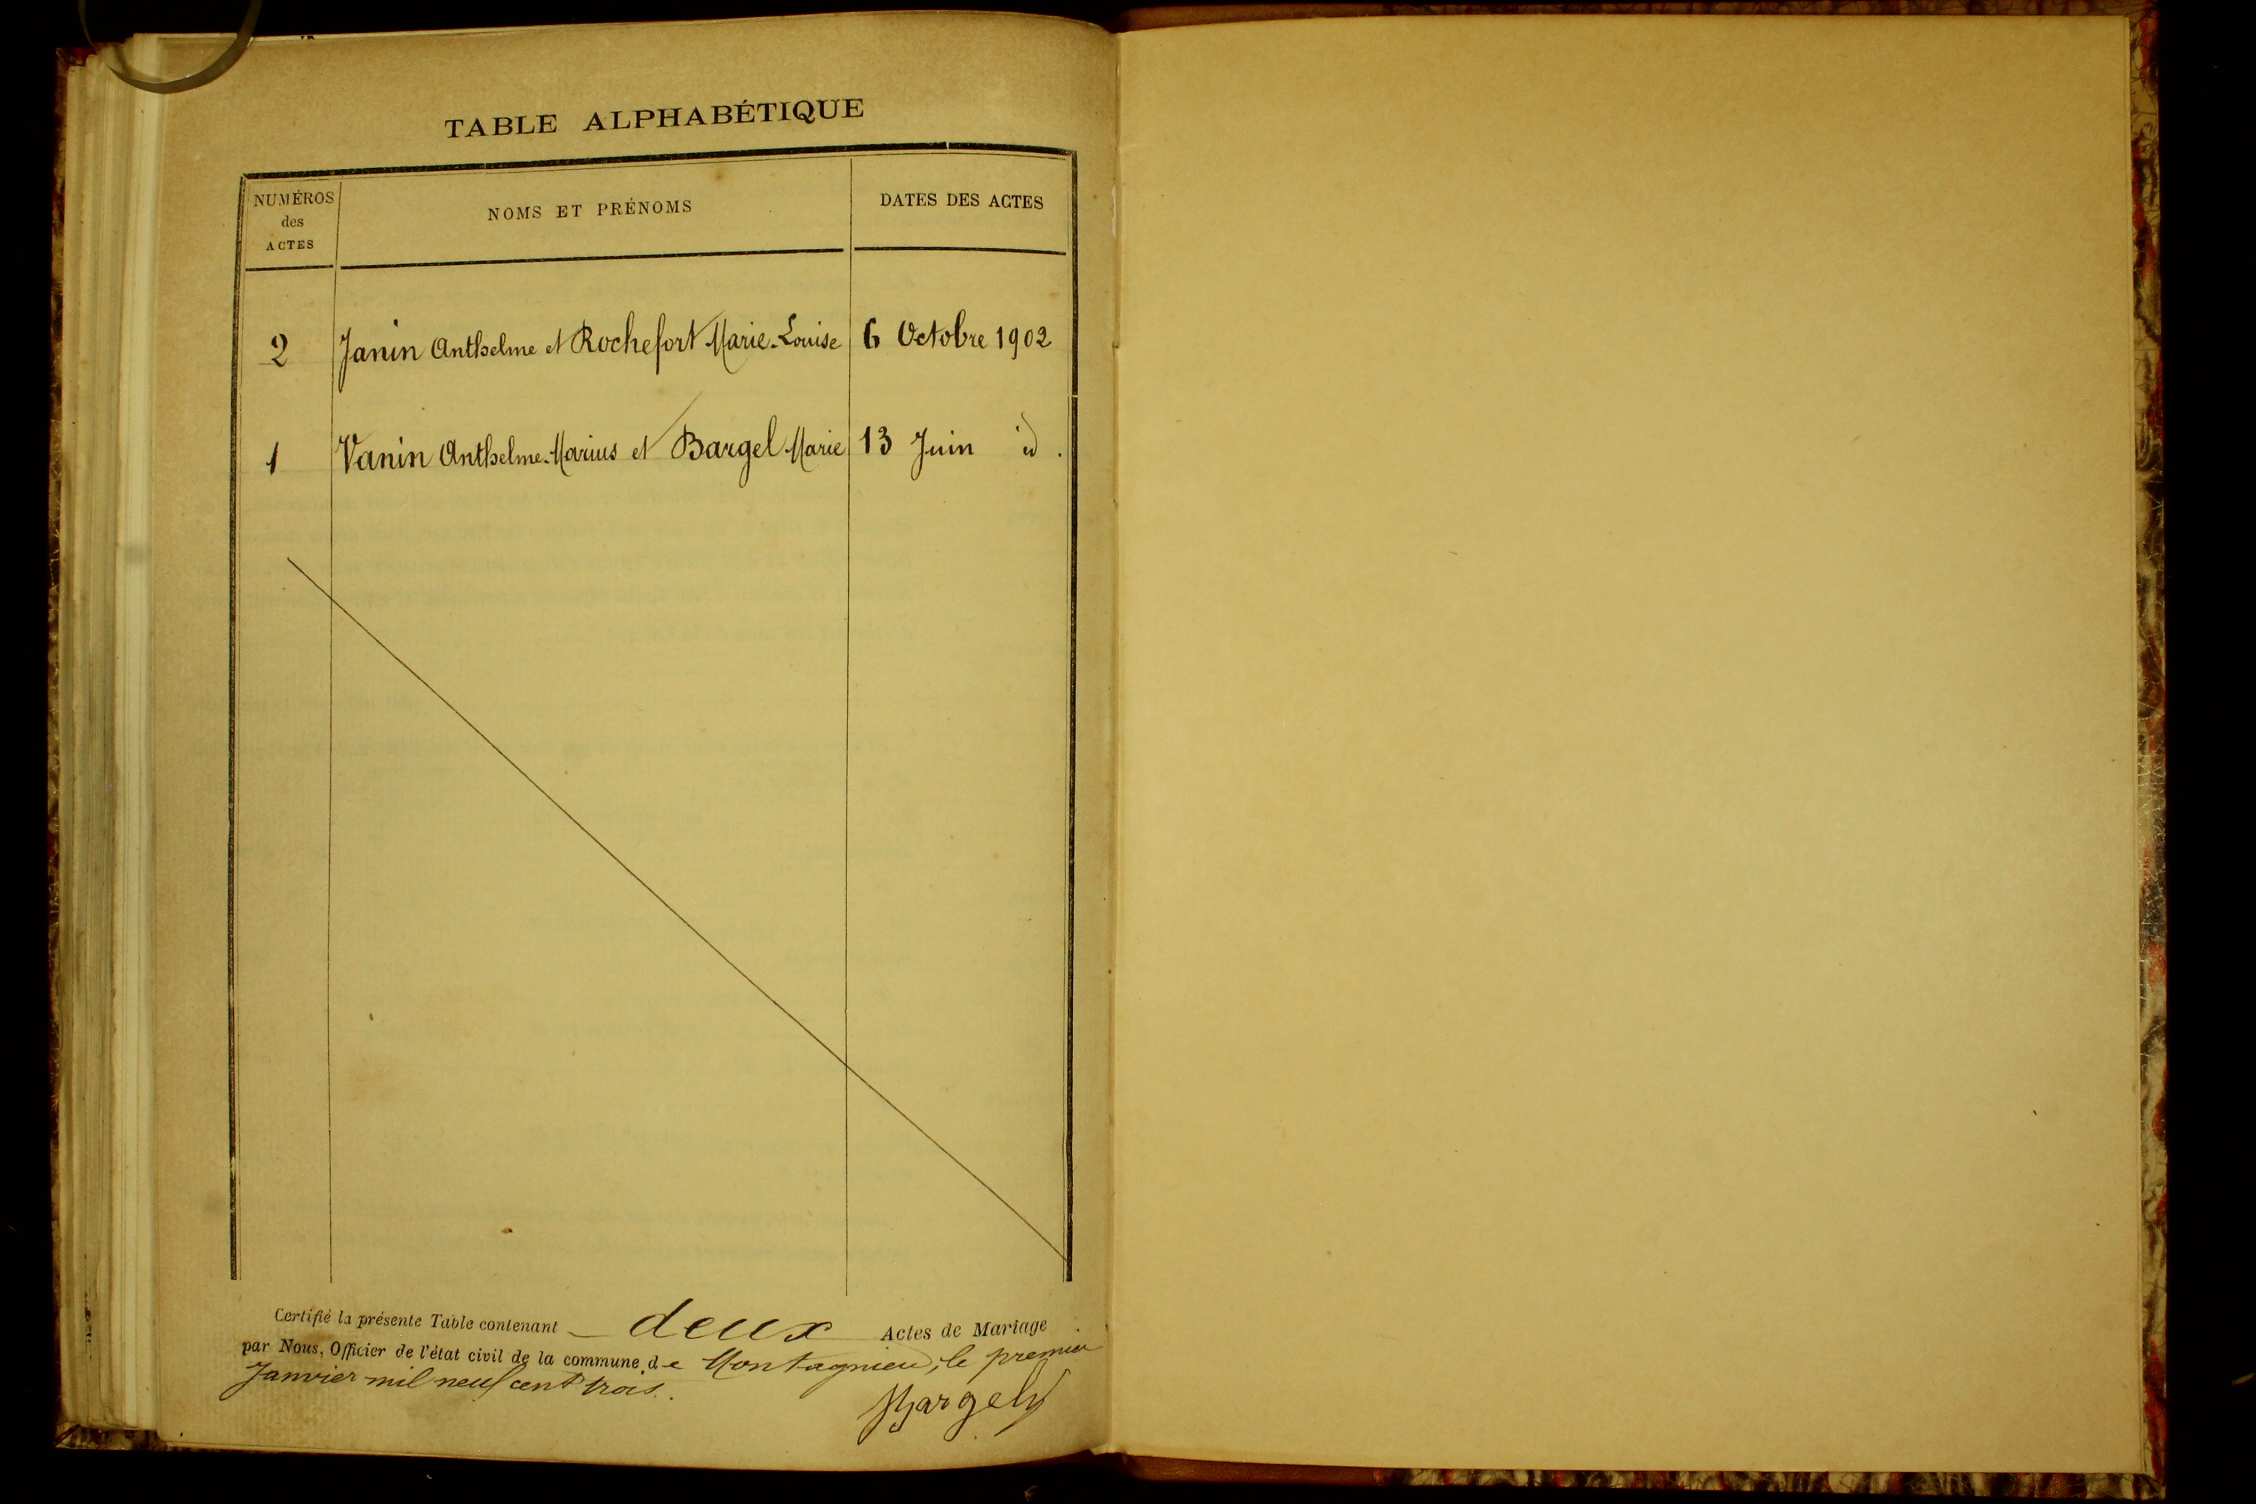 TABLE ALPHABÉTIQUE
NUMÉROS
des
ACTES
NOMS ET PRÉNOMS
DATES DES ACTES
2 Janin Anthelme et Rochefort Marie-Louise 6 Octobre 1902
1 Vanin Anthelme-Marius et Bargel Marie 13 Juin id.
Certifié la présente Table contenant deux Actes de Mariage
par Nous, Officier de l'état civil de la commune de Montagnieu, le premier
Janvier mil neuf cent trois.